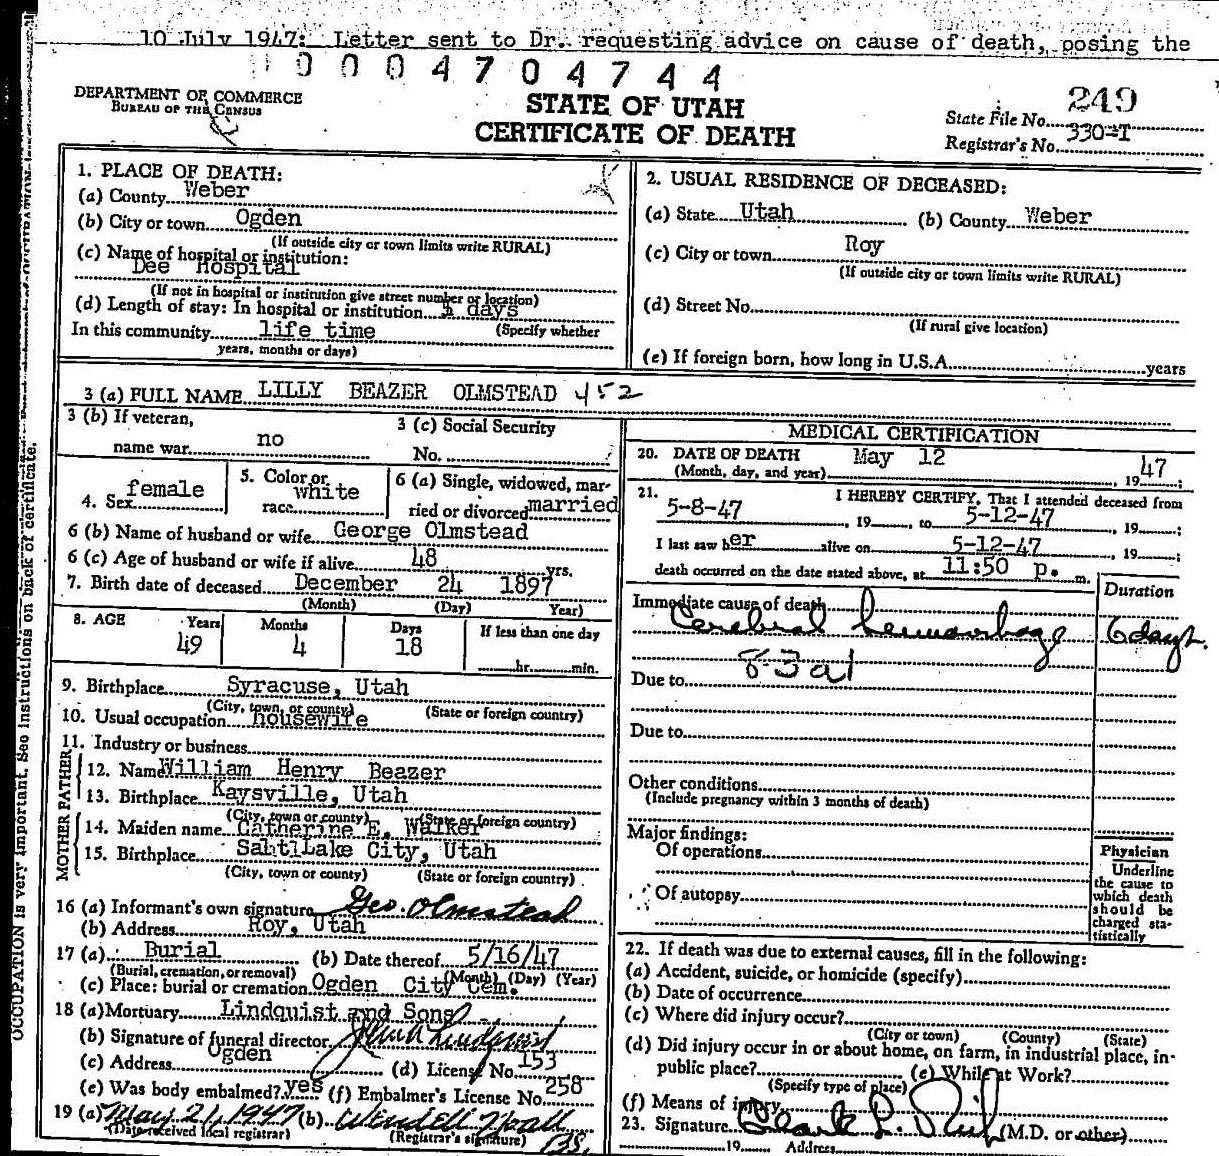 10 July 1947: Letter sent to Dr. requesting advice on cause of death, posing the
0004704744
DEPARTMENT OF COMMERCE
BUREAU OF THE CENSUS
STATE OF UTAH
CERTIFICATE OF DEATH
State File No. 249
Registrar's No. 330-T
1. PLACE OF DEATH:
(a) County Weber
(b) City or town Ogden
(If outside city or town limits write RURAL)
(c) Name of hospital or institution:
Dee Hospital
(If not in hospital or institution give street number or location)
(d) Length of stay: In hospital or institution days
In this community life time (Specify whether
years, months or days)
2. USUAL RESIDENCE OF DECEASED:
(a) State Utah (b) County Weber
(c) City or town Roy
(If outside city or town limits write RURAL)
(d) Street No.
(If rural give location)
(e) If foreign born, how long in U.S.A. years
3 (a) FULL NAME LILLY BEAZER OLMSTEAD 452
3 (b) If veteran,
name war no
3 (c) Social Security
No.
4. Sex female
5. Color or
race white
6 (a) Single, widowed, mar-
ried or divorced married
6 (b) Name of husband or wife George Olmstead
6 (c) Age of husband or wife if alive 48 yrs.
7. Birth date of deceased December 24 1897
(Month) (Day) Year)
8. AGE Years Months Days If less than one day
49 4 18 hr. min.
9. Birthplace Syracuse, Utah
(City, town, or county) (State or foreign country)
10. Usual occupation housewife
11. Industry or business
FATHER
12. Name William Henry Beazer
13. Birthplace Kaysville, Utah
(City, town or county) (State or foreign country)
MOTHER
14. Maiden name Catherine E. Walker
15. Birthplace Salt Lake City, Utah
(City, town or county) (State or foreign country)
16 (a) Informant's own signature Geo. Olmstead
(b) Address Roy, Utah
17 (a) Burial (b) Date thereof 5/16/47
(Burial, cremation, or removal) (Month) (Day) (Year)
(c) Place: burial or cremation Ogden City Cem.
18 (a) Mortuary Lindquist and Sons
(b) Signature of funeral director John A Lindquist
(c) Address Ogden (d) License No. 153
(e) Was body embalmed? yes (f) Embalmer's License No. 258
19 (a) May 21, 1947 (b) Wendell
(Date received local registrar) (Registrar's signature)
MEDICAL CERTIFICATION
20. DATE OF DEATH May 12
(Month, day, and year) , 19 47;
21. I HEREBY CERTIFY, That I attended deceased from
5-8-47 , 19 , to 5-12-47 , 19 ;
I last saw her alive on 5-12-47 , 19 ;
death occurred on the date stated above, at 11:50 p. m.
Duration
Immediate cause of death
Cerebral hemorrhage 6 days
83a1
Due to
Due to
Other conditions
(Include pregnancy within 3 months of death)
Major findings:
Of operations
Of autopsy
Physician
Underline
the cause to
which death
should be
charged sta-
tistically
22. If death was due to external causes, fill in the following:
(a) Accident, suicide, or homicide (specify)
(b) Date of occurrence
(c) Where did injury occur?
(City or town) (County) (State)
(d) Did injury occur in or about home, on farm, in industrial place, in-
public place? (e) While at Work?
(Specify type of place)
(f) Means of injury
23. Signature Clark L. (M.D. or other)
19 Address
OCCUPATION is very important. See instructions on back of certificate.